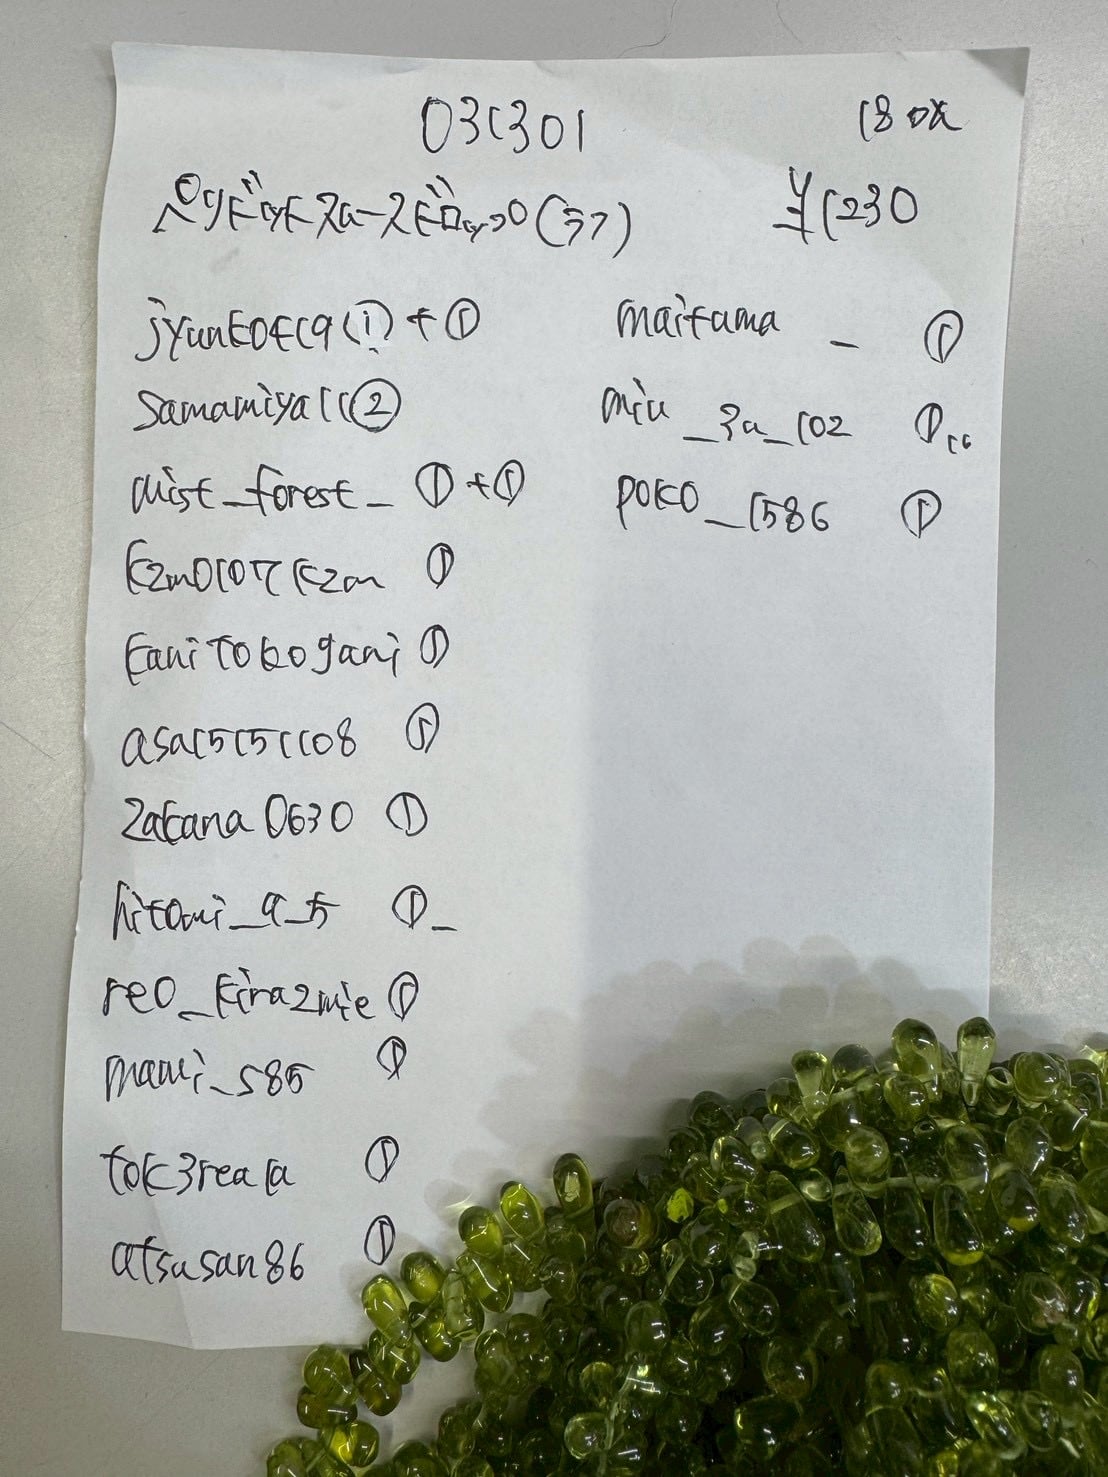 031301 180pt
ペリドットスムースドロップ(ラフ) ¥1230
jyunko419 ① + ①
samamiya11 ②
mist_forest_ ① + ①
kzm0107kzm ①
kanitobogani ①
asa15151108 ①
zakana0630 ①
hitomi_9_5 ①
reo_kirazmie ①
mami_s85 ①
tok3reala ①
atsusan86 ①
maitama_ ①
miu_3u_102 ①
poko_1586 ①